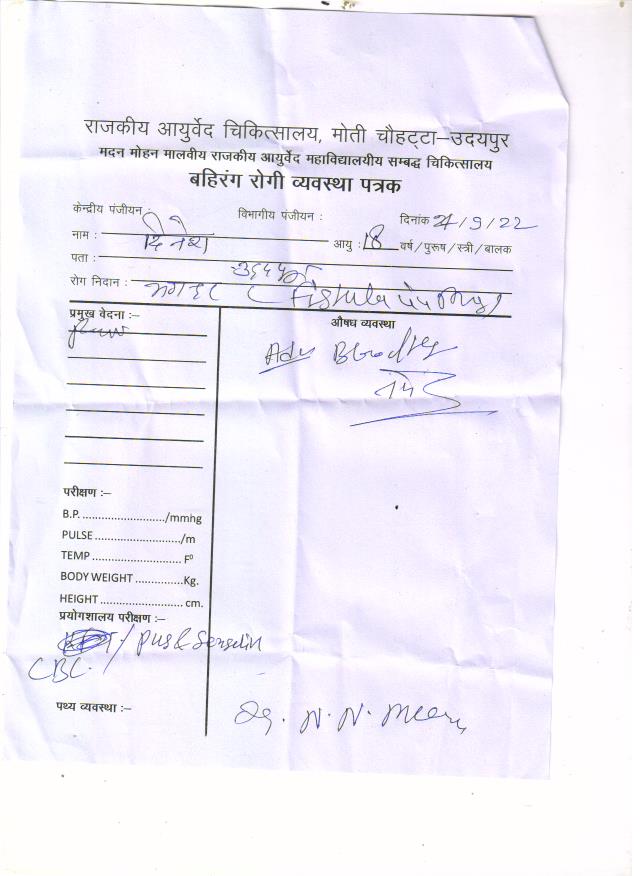 राजकीय आयुर्वेद चिकित्सालय, मोती चौहट्टा–उदयपुर
मदन मोहन मालवीय राजकीय आयुर्वेद महाविद्यालयीय सम्बद्ध चिकित्सालय
बहिरंग रोगी व्यवस्था पत्रक
केन्द्रीय पंजीयन : विभागीय पंजीयन : दिनांक /9/22
नाम : दिनेश आयु : 18 वर्ष/पुरूष/स्त्री/बालक
पता : उदयपुर
रोग निदान : भगन्दर ( Fistula
प्रमुख वेदना :–
औषध व्यवस्था
Adv
परीक्षण :–
B.P. ........................../mmhg
PULSE ........................../m
TEMP ............................ F⁰
BODY WEIGHT ...............Kg.
HEIGHT .......................... cm.
प्रयोगशालय परीक्षण :–
/ pus &
CBC.
पथ्य व्यवस्था :–
Dr. N. N. Meena